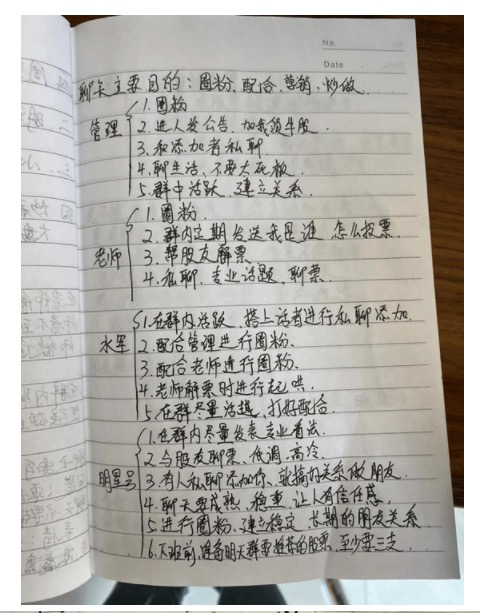 No.
Date
聊天主要目的：圈粉、配合、营销、炒做
管理
1.圈粉
2.进人发公告、加我领牛股
3.和添加者私聊
4.聊生活、不要太死板
5.群中活跃、建立关系
老师
1.圈粉.
2.群内定期发送我是谁 怎么投票.
3.帮股友解票
4.私聊、专业话题、聊票.
水军
1.在群内活跃、搭上话者进行私聊添加.
2.配合管理进行圈粉.
3.配合老师进行圈粉.
4.老师解票时进行起哄.
5.在群尽量活跃、打好配合.
明星号
1.在群内尽量发表专业看法.
2.与股友聊票、低调、高冷.
3.有人私聊添加你、就搞好关系做朋友
4.聊天要成熟、稳重、让人有信任感.
5.进行圈粉、建立稳定、长期的朋友关系
6.下班前,准备明天群要推荐的股票,至少要三支.